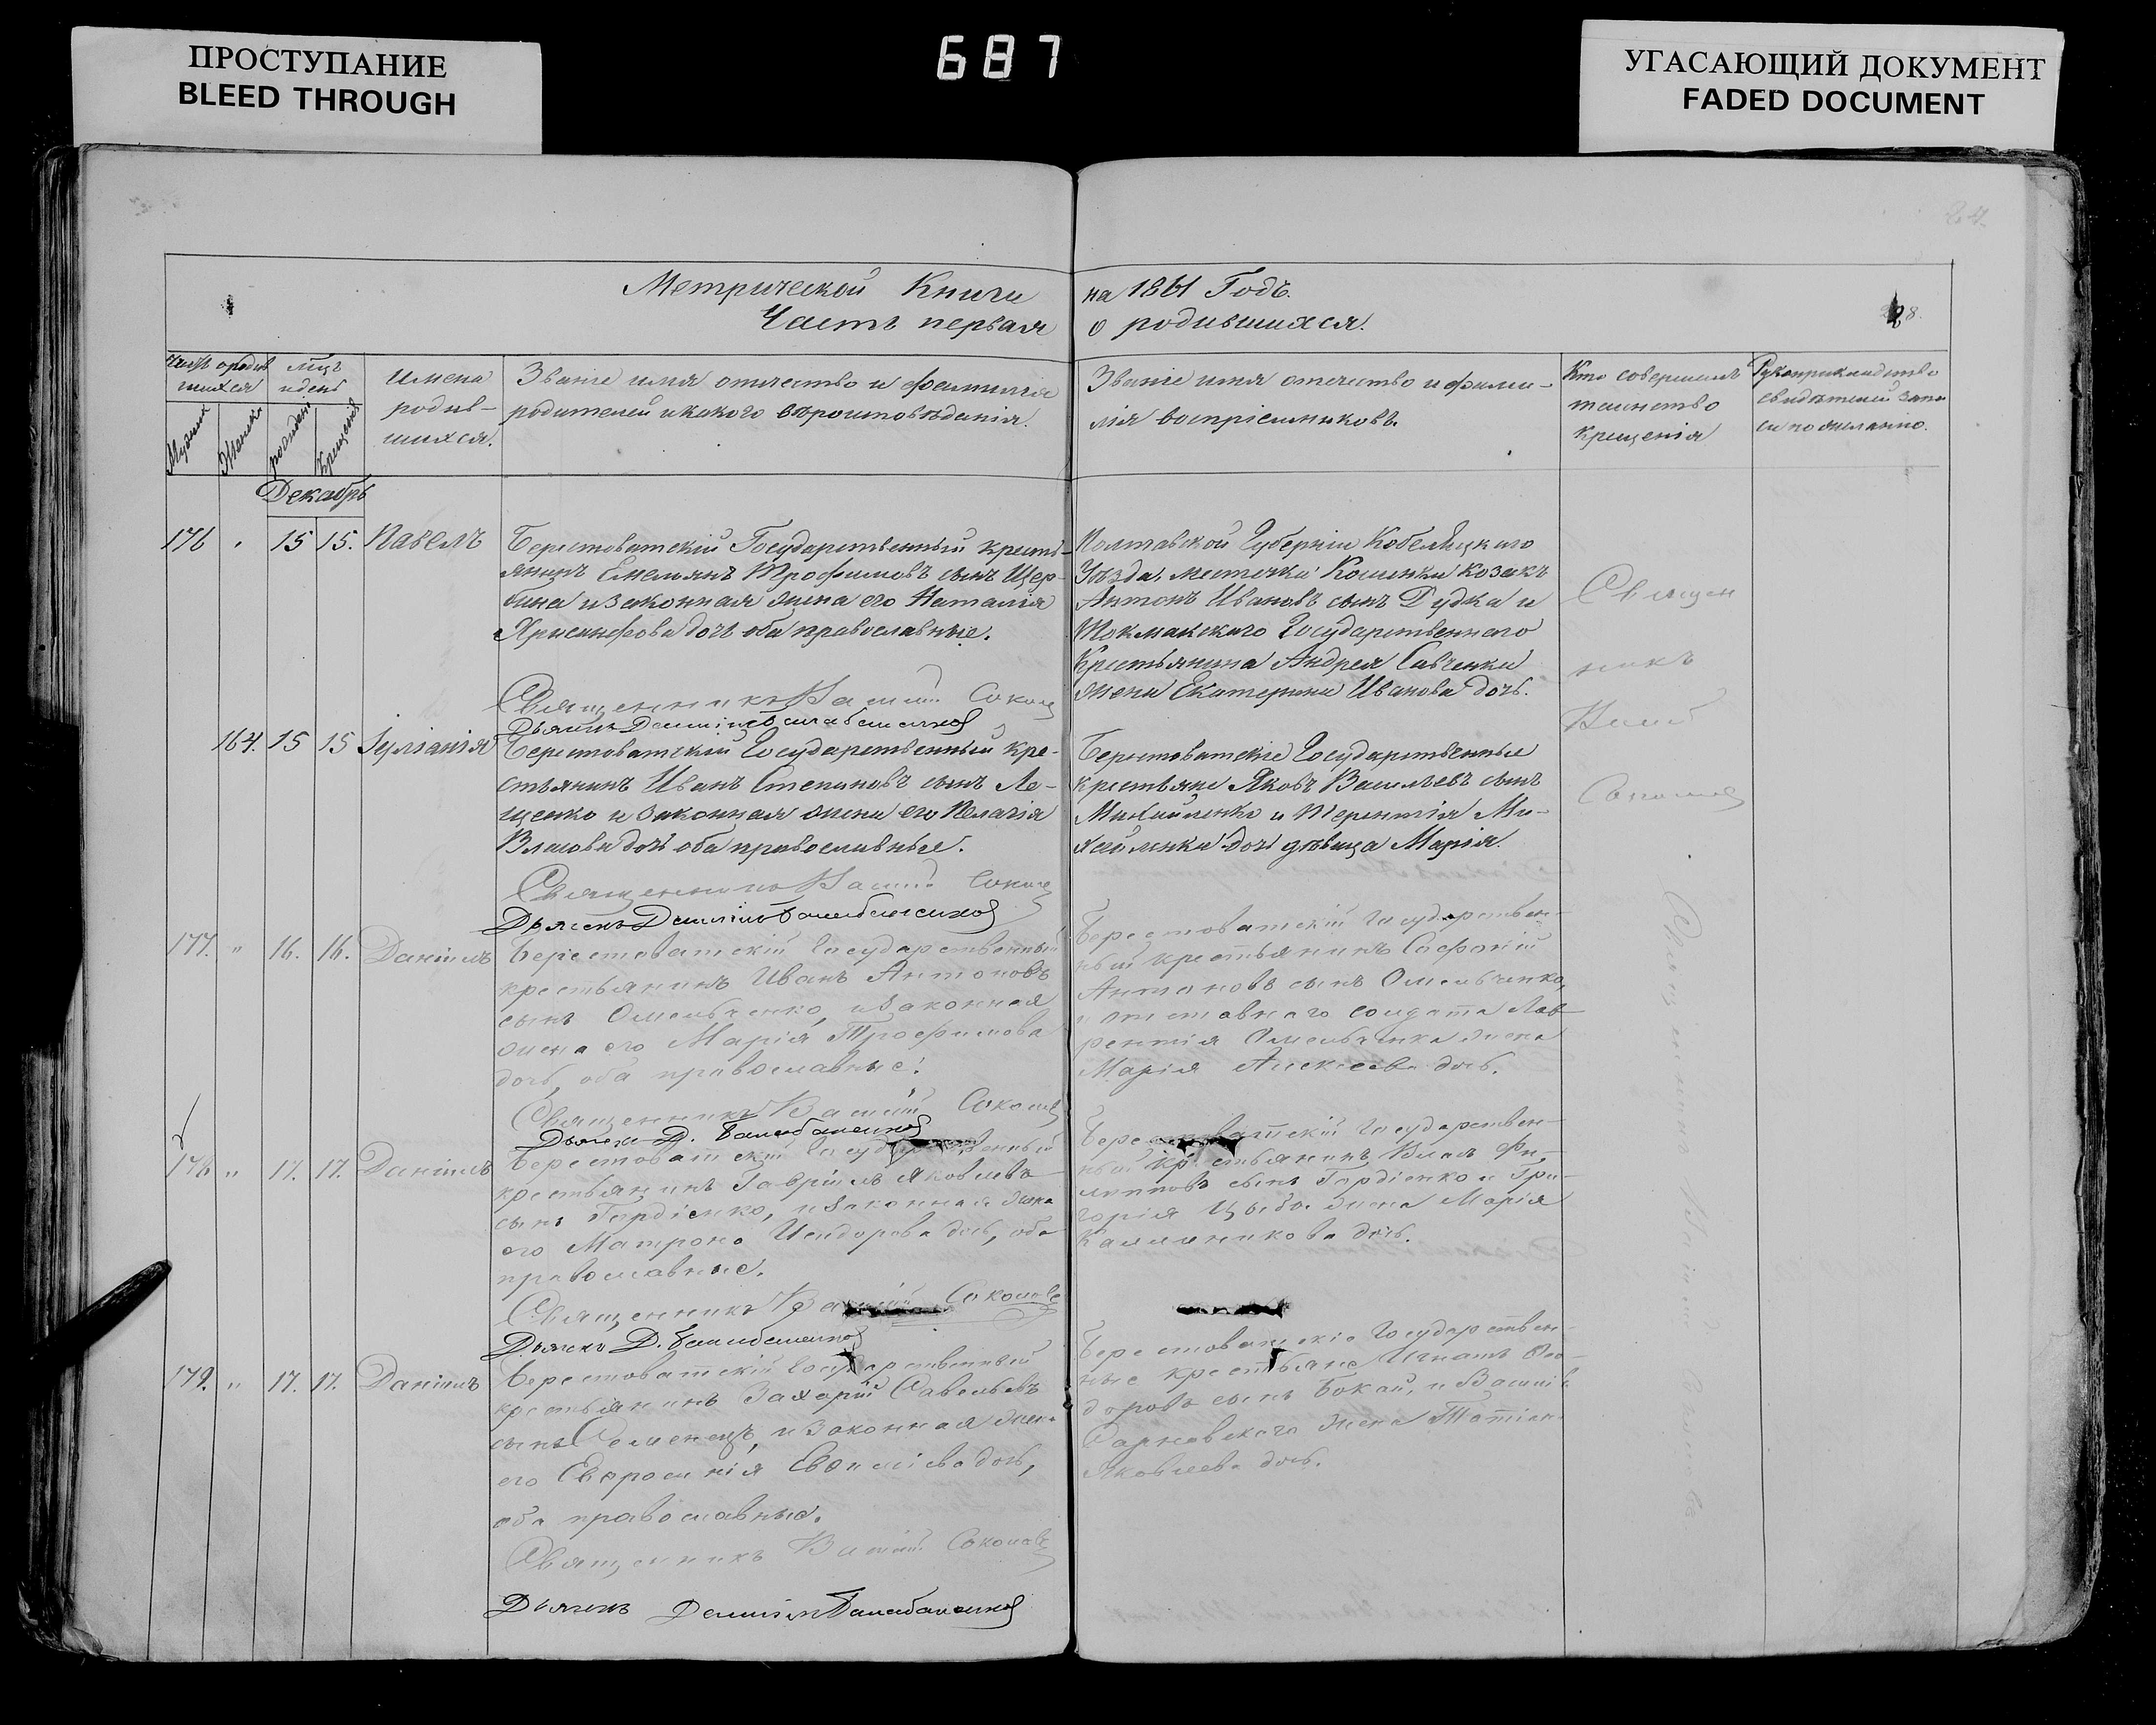 ПРОСТУПАНИЕ
BLEED THROUGH
687
УГАСАЮЩИЙ ДОКУМЕНТ
FADED DOCUMENT
Метрической Книги на 1861 Годъ.
Часть первая о родившихся.
мужска
женска
рожденія
крещенія
Имена
родив-
шихся.
Званіе имя отчество и фамилія
родителей и какого вѣроисповѣданія.
Званіе имя отчество и фами-
лія воспріемниковъ.
Кто совершалъ
таинство
крещенія
Рукоприкладство
свидѣтелей запи
си по желанію.
Декабрь
176 15 15. Павелъ
Берестоватскій Государственный кресть-
янинъ Емельянъ Трофимовъ сынъ Щер-
бина и законная жена его Наталія
Хрисанфова дочь оба православные.
Полтавской Губерніи Кобеляцкаго
Уѣзда, местечка Кишенки козакъ
Антонъ Ивановъ сынъ Дудка и
Токмакскаго Государственнаго
Крестьянина Андрея Савченки
жена Екатерина Иванова дочь.
Священникъ Василій Соколов
Дьячекъ
Священ
никъ
Васил
Соколов
164. 15 15 Іуліанія
Берестоватскій Государственный кре-
стьянинъ Иванъ Степановъ сынъ Ле-
щенко и законная жена его Пелагія
Власова дочь оба православные.
Берестоватскіе Государственные
крестьяне Яковъ Васильевъ сынъ
Михайленко и Терентія Ми-
хайленка дочь дѣвица Марія.
Священникъ Василій Соколов
Дьячекъ
177. " 16. 16. Даніилъ
Берестоватскій Государственный
крестьянинъ Иванъ Антоновъ
сынъ Омельченко, и законная
жена его Марія Трофимова
дочь, оба православные.
Берестоватскій Государствен-
ный крестьянинъ Софроній
Антоновъ сынъ Омельченко,
и отставнаго солдата Лав-
рентія Омельченка жена
Марія Алексеева дочь.
Священникъ Василій Соколов
Дьячекъ Д.
178 " 17. 17. Даніилъ
Берестоватскій Государственный
крестьянинъ Гавріилъ Яковлевъ
сынъ Гордіенко, и законная жена
его Матрона Исидорова дочь, оба
православные.
Берестоватскій Государствен-
ный крестьянинъ Власъ Фи-
липповъ сынъ Гордіенко и Гри-
горія Цыбы жена Марія
Калленикова дочь.
Священникъ Василій Соколовъ
Дьячекъ Д.
179. " 17. 17. Даніилъ
Берестоватскій Государственный
крестьянинъ Захарій Савельевъ
сынъ Семенецъ, и законная жена
его Евфросинія
оба православные.
Берестоватскіе Государствен-
ные крестьяне Игнатъ Фео-
доровъ сынъ Бокай, и Василія
жена Татіана
Яковлева дочь.
Священникъ Василій Соколовъ
Дьячекъ